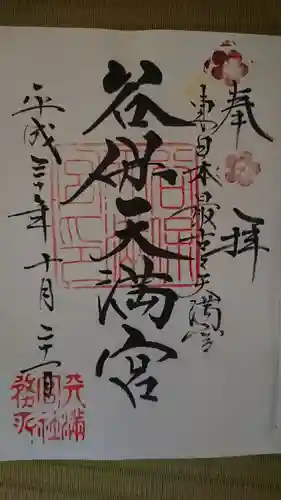 奉拝
東日本最古之天満宮
谷保天満宮
平成三十年十月二十一日
天満宮社務所